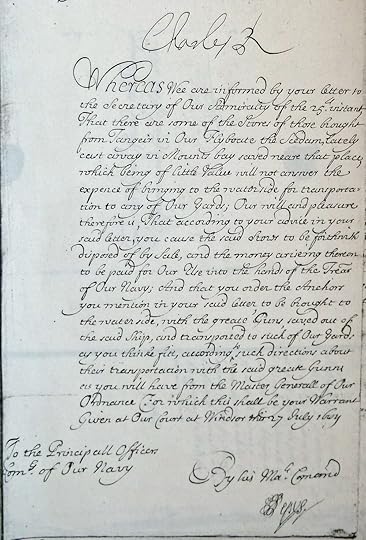 Charles R
Whereas Wee are informed by your letter to
the Secretary of Our Admiralty of the 25th instant
That there are some of the Stores of those brought
from Tangeir in Our Flyboate the lately
cast away in Mounts bay saved neare that place,
which being of little Value will not answer the
expence of bringing to the waterside for transporta
tion to any of Our Yards; Our will and pleasure
therefore is, That according to your advice in your
said letter, you cause the said stores to be forthwith
disposed of by Sale, and the money ariseing thereon
to be paid for Our Use into the hands of the Treãr
of Our Navy; And that you order the Anchors
you mention in your said letter to be brought to
the waterside, with the greate Guns saved out of
the said Ship, and transported to such of Our Yards
as you thinke fitt, according such directions about
their transportation with the said greate Gunns
as you will have from the Master Generall of Our
Ordnance For which this shall be your Warrant
Given at Our Court at Windsor this 27 July
To the Principall Officers
Comrs. of Our Navy
By his Mats. Comand